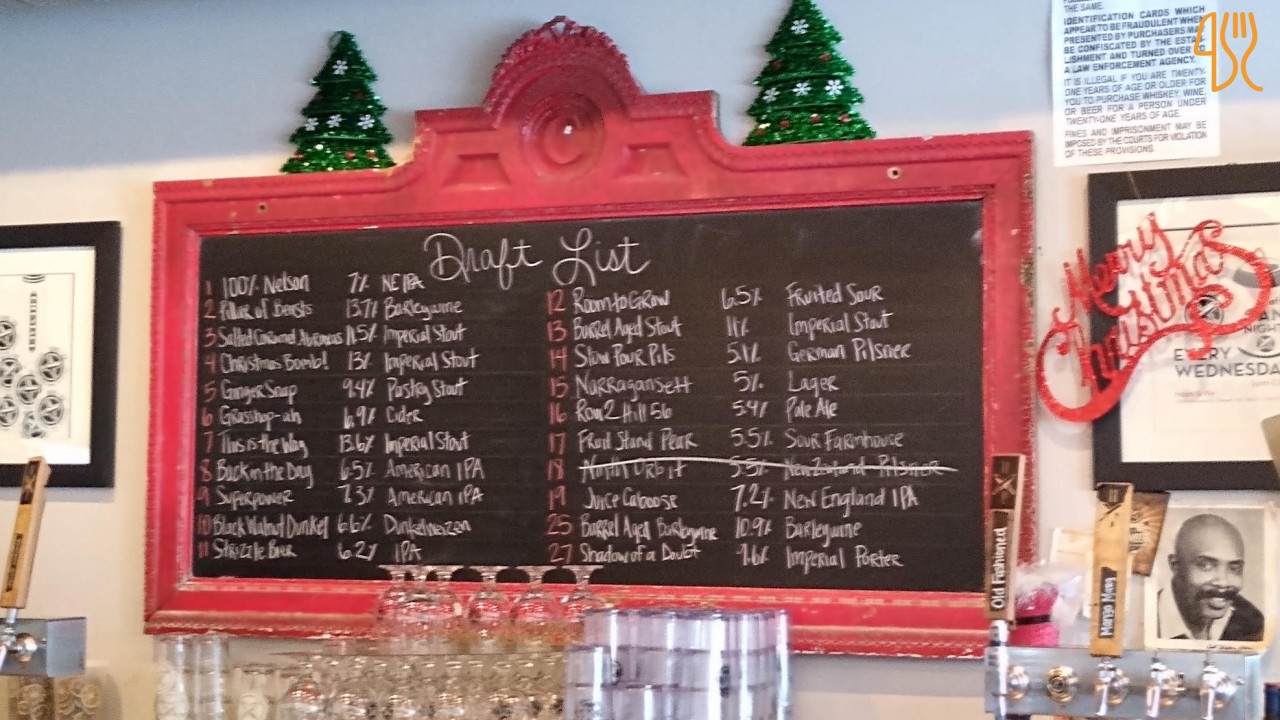 THE SAME.
IDENTIFICATION CARDS WHICH
APPEAR TO BE FRAUDULENT WHEN
PRESENTED BY PURCHASERS MAY
BE CONFISCATED BY THE ESTAB-
LISHMENT AND TURNED OVER TO
A LAW ENFORCEMENT AGENCY.
IT IS ILLEGAL IF YOU ARE TWENTY-
ONE YEARS OF AGE OR OLDER FOR
YOU TO PURCHASE WHISKEY, WINE
OR BEER FOR A PERSON UNDER
TWENTY-ONE YEARS OF AGE.
FINES AND IMPRISONMENT MAY BE
IMPOSED BY THE COURTS FOR VIOLATION
OF THESE PROVISIONS.
Draft List
1 100% Nelson 7% NE IPA
2 Pillar of Beasts 13.7% Barleywine
3 Salted Caramel 11.5% Imperial Stout
4 Christmas Bomb! 13% Imperial Stout
5 Ginger Snap 9.4% Pastry Stout
6 Grasshop-ah 6.9% Cider
7 This is the Way 13.6% Imperial Stout
8 Back in the Day 6.5% American IPA
9 Superpower 7.3% American IPA
10 Black Walnut Dunkel 6.6% Dunkelweizen
11 Strizzle Bier 6.2% IPA
12 Room to Grow 6.5% Fruited Sour
13 Barrel Aged Stout 11% Imperial Stout
14 Slow Pour Pils 5.1% German Pilsner
15 Narragansett 5% Lager
16 Row 2 Hill 56 5.4% Pale Ale
17 Fruit Stand Pear 5.5% Sour Farmhouse
18 North Orbit 5.5% New Zealand Pilsner
19 Juice Caboose 7.2% New England IPA
25 Barrel Aged Barleywine 10.9% Barleywine
27 Shadow of a Doubt 9.6% Imperial Porter
Merry
Christmas
EVERY
WEDNESDAY
Old Fashioned
Mango